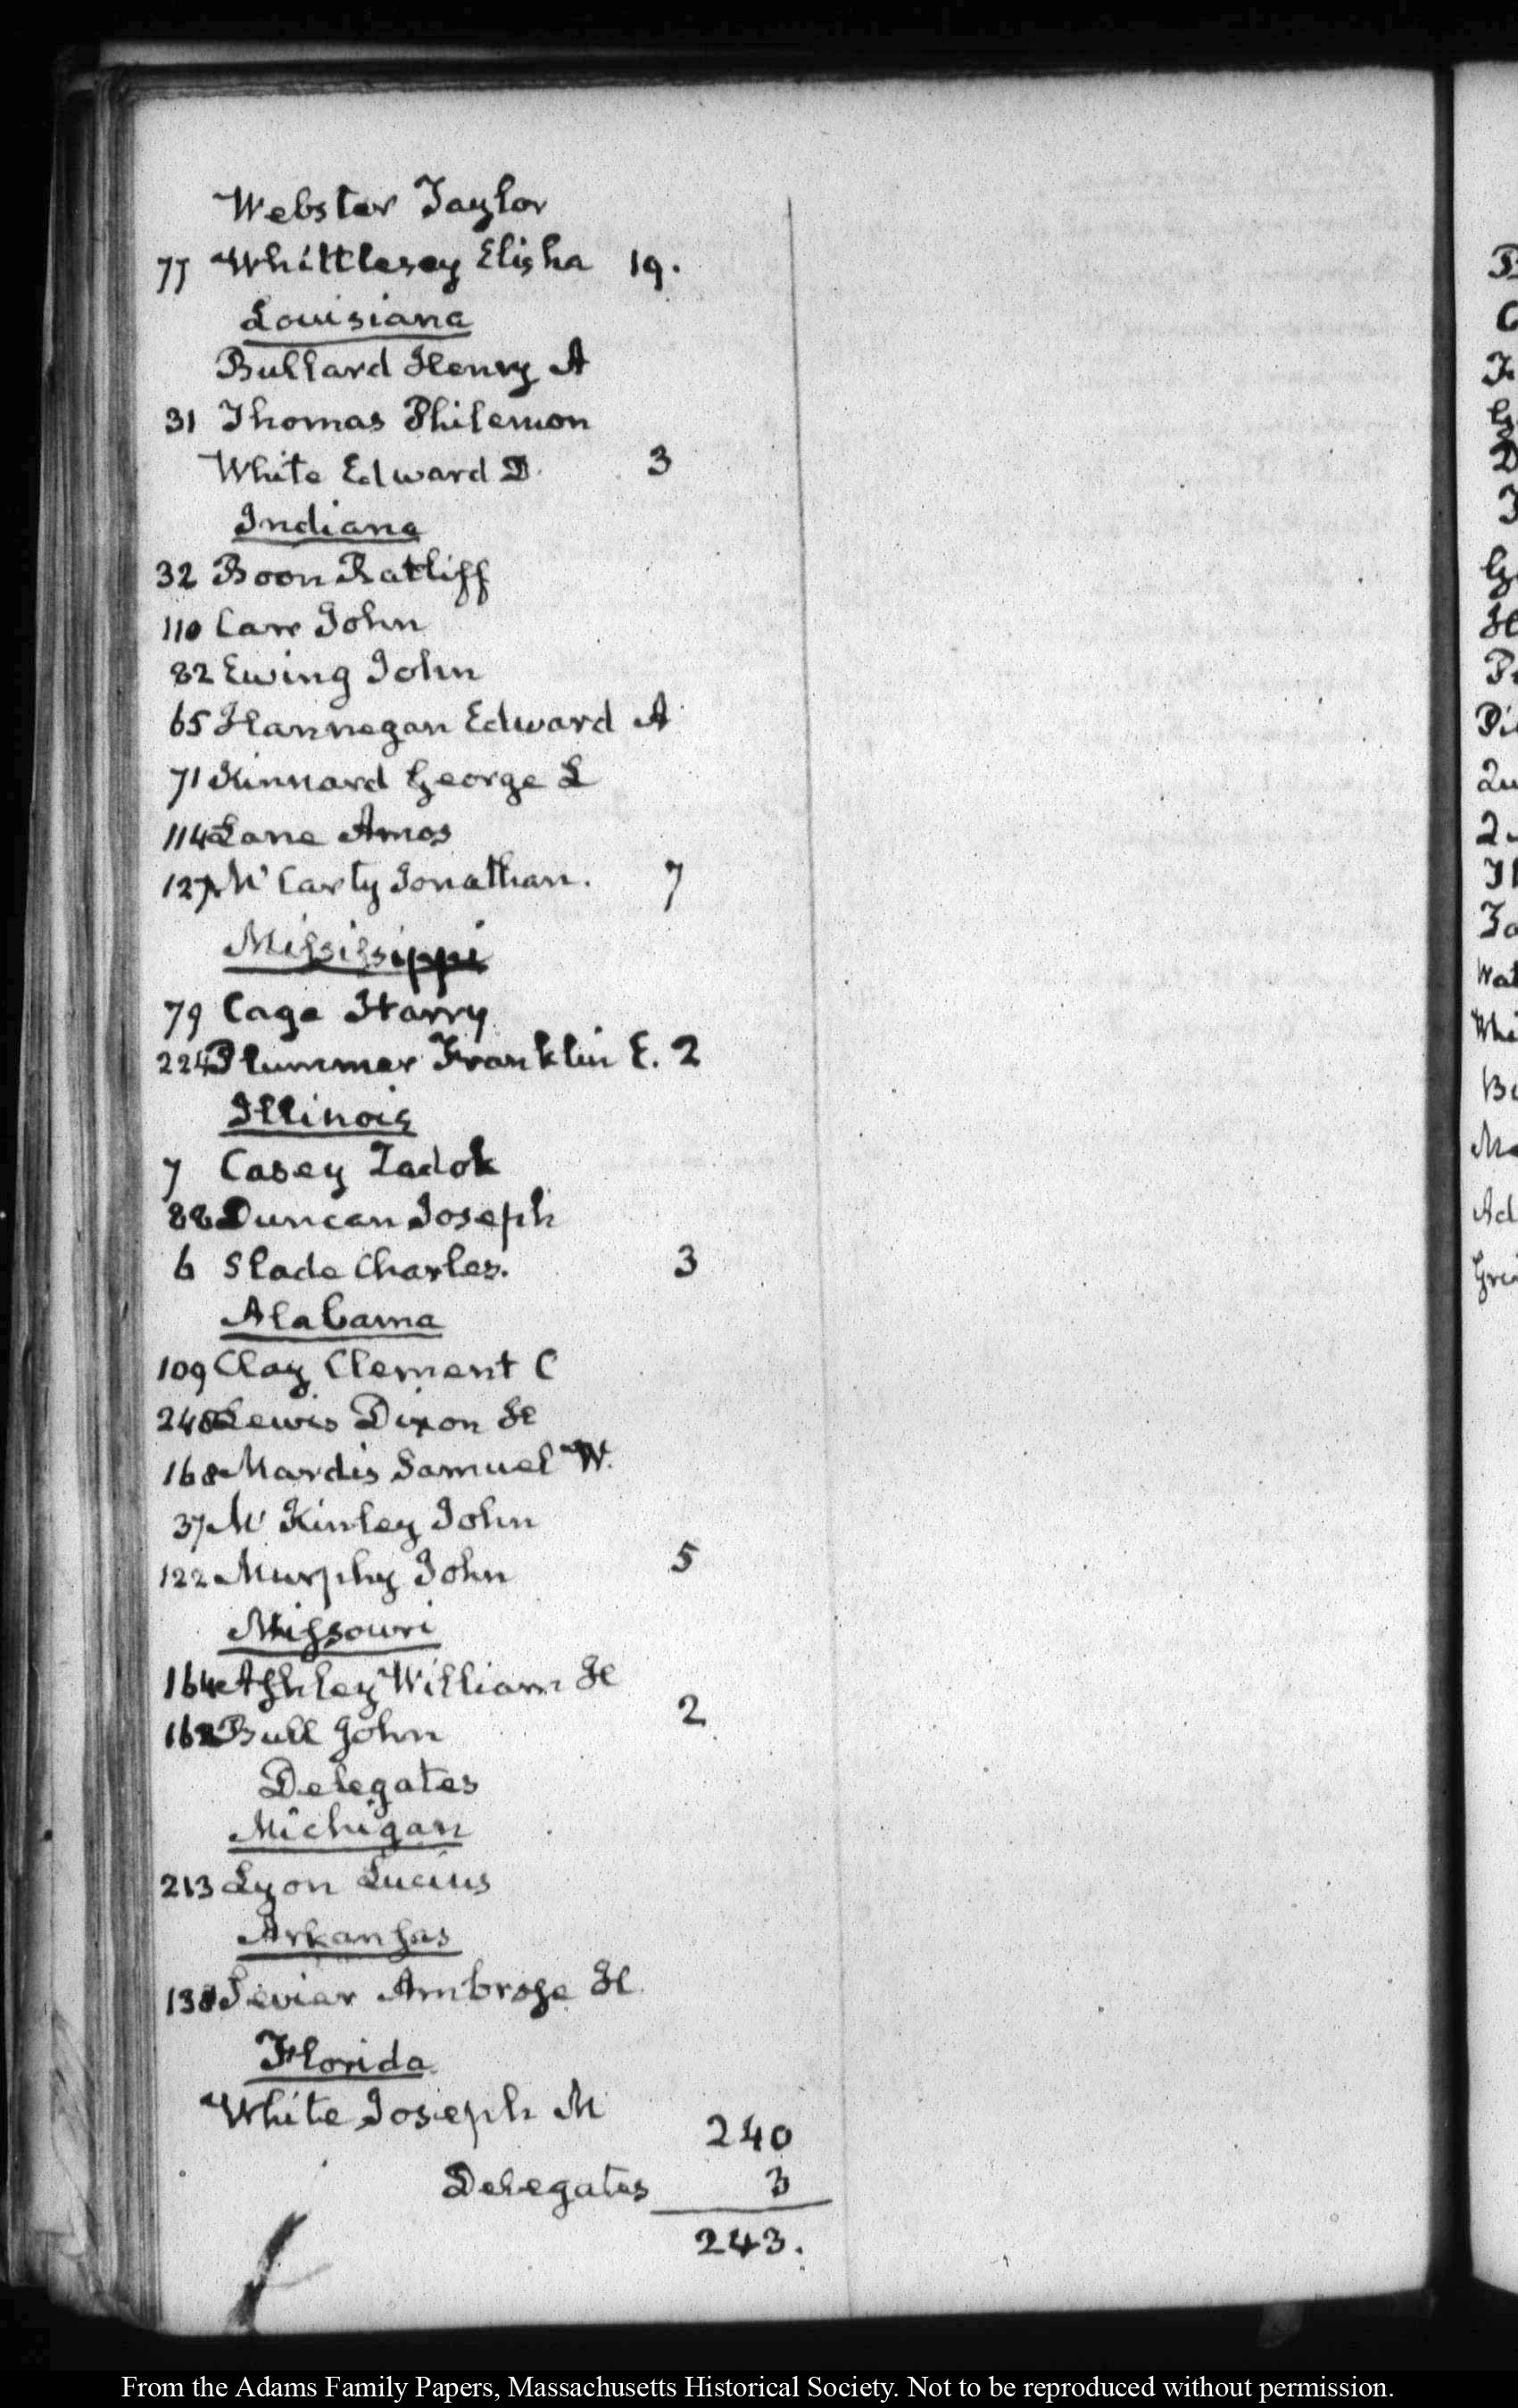 Webster Taylor
77 Whittlesey Elisha 19.
Louisiana
Bullard Henry A
31 Thomas Philemon
White Edward D. 3
Indiana
32 Boon Ratliff
110 Carr John
82 Ewing John
65 Hannegan Edward A
71 Kinnard George L
114 Lane Amos
127 Mc Carty Jonathan. 7
Mississippi
79 Cage Harry
224 Plummer Franklin E. 2
Illinois
7 Casey Zadok
88 Duncan Joseph
6 Slade Charles. 3
Alabama
109 Clay Clement C
248 Lewis Dixon H
168 Mardis Samuel W.
37 Mc Kinley John
122 Murphy John 5
Missouri
164 Ashley William H
162 Bull John 2
Delegates
Michigan
213 Lyon Lucius
Arkansas
138 Sevier Ambrose H.
Florida
White Joseph M
240
Delegates 3
243.
From the Adams Family Papers, Massachusetts Historical Society. Not to be reproduced without permission.